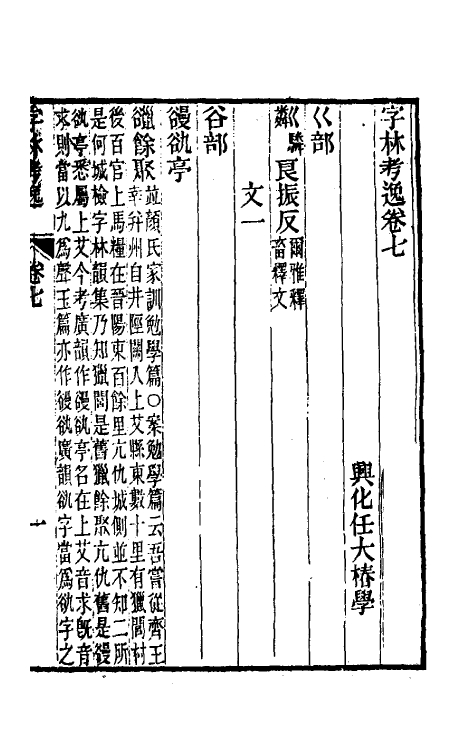 字林考逸卷七
興化任大椿學
巜部
粼驎 良振反 爾雅釋
畜釋文
文一
谷部
䜱䜪亭
𤢪餘聚 並顔氏家訓勉學篇○案勉學篇云吾嘗從齊王
幸并州自井陘關入上艾縣東數十里有獵閭村
後百官上馬糧在晉陽東百餘里亢仇城側並不知二所
是何城檢字林韻集乃知獵閭是舊獵餘聚亢仇舊是䜱
䜪亭悉屬上艾今考廣韻作䜱䜪亭名在上艾音求旣音
求則當以九爲聲玉篇亦作䜱䜪廣韻䜪字當爲䜪字之
字林考逸 卷七 一